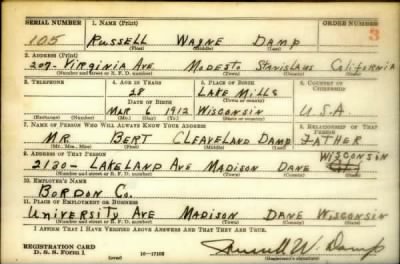 SERIAL NUMBER 1. NAME (Print) ORDER NUMBER
105 RUSSELL WAYNE DAMP 3
(First) (Middle) (Last)
2. ADDRESS (Print)
209- VIRGINIA AVE MODESTO STANISLAUS CALIFORNIA
(Number and street or R. F. D. number) (Town) (County) (State)
3. TELEPHONE 4. AGE IN YEARS 5. PLACE OF BIRTH 6. COUNTRY OF CITIZENSHIP
28 LAKE MILLS
DATE OF BIRTH (Town or county)
MAR 6 1912 WISCONSIN U.S.A.
(Exchange) (Number) (Mo.) (Day) (Yr.) (State or country)
7. NAME OF PERSON WHO WILL ALWAYS KNOW YOUR ADDRESS 8. RELATIONSHIP OF THAT PERSON
MR. BERT CLEAVELAND DAMP FATHER
(Mr., Mrs., Miss) (First) (Middle) (Last)
9. ADDRESS OF THAT PERSON WISCONSIN
2130- LAKELAND AVE MADISON DANE
(Number and street or R. F. D. number) (Town) (County) (State)
10. EMPLOYER'S NAME
BORDON CO.
11. PLACE OF EMPLOYMENT OR BUSINESS
UNIVERSITY AVE MADISON DANE WISCONSIN
(Number and street or R. F. D. number) (Town) (County) (State)
I AFFIRM THAT I HAVE VERIFIED ABOVE ANSWERS AND THAT THEY ARE TRUE.
REGISTRATION CARD
D. S. S. FORM 1 (over) 16-17105 Russell W. Damp
(Registrant's signature)